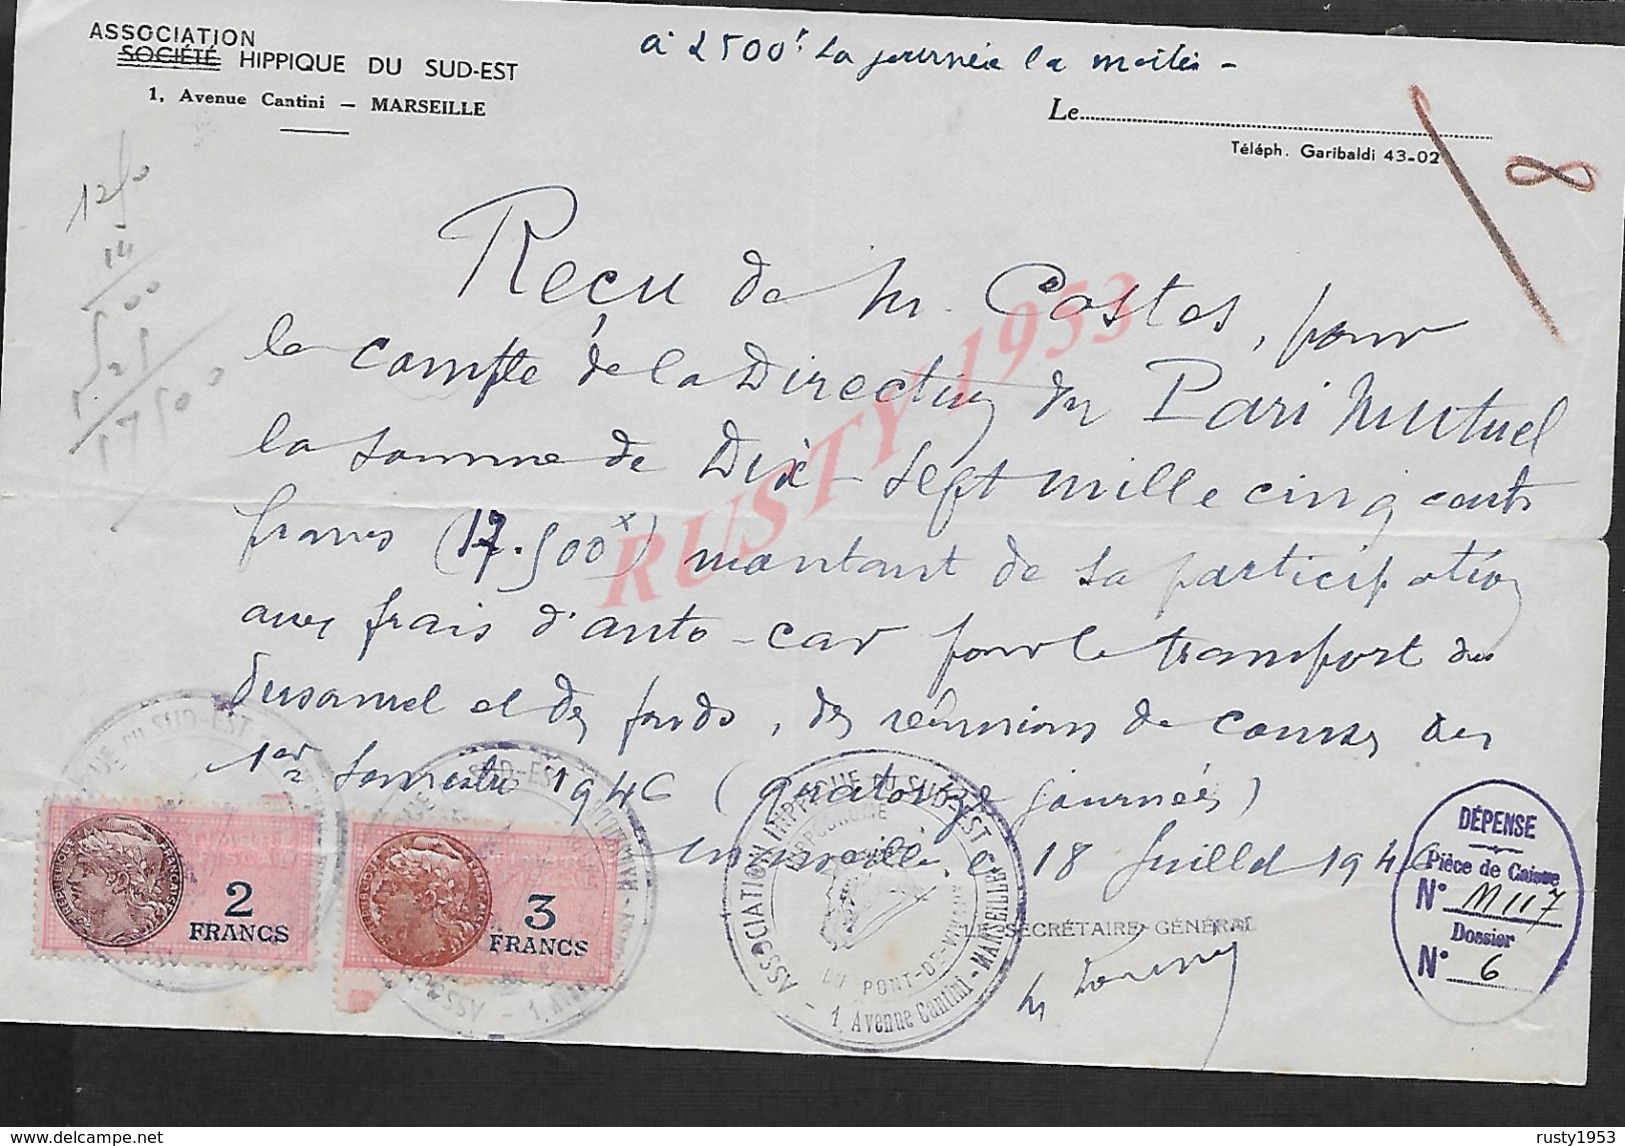 à 2500f la journée la moitié -
ASSOCIATION
SOCIÉTÉ HIPPIQUE DU SUD-EST
1, Avenue Cantini — MARSEILLE
Le
Téléph. Garibaldi 43-02
8
1250
14
500
17500
Reçu de M. Costes, pour
le compte de la Direction du Pari Mutuel
la somme de Dix-Sept mille cinq cents
francs (17.500) montant de sa participation
aux frais d'auto-car pour le transport du
personnel et des fonds, des réunions de courses du
1er Semestre 1946 (quatorze journées)
Marseille, le 18 Juillet 1946
LE SECRÉTAIRE-GÉNÉRAL
RUSTY 1953
2
FRANCS
3
FRANCS
RÉPUBLIQUE FRANÇAISE
ASSOCIATION HIPPIQUE DU SUD-EST
HIPPODROME
DU PONT-DE-VIVAUX
1, Avenue Cantini - MARSEILLE
DÉPENSE
Pièce de Caisse
N° M 117
Dossier
N° 6
delcampe.net
rusty1953